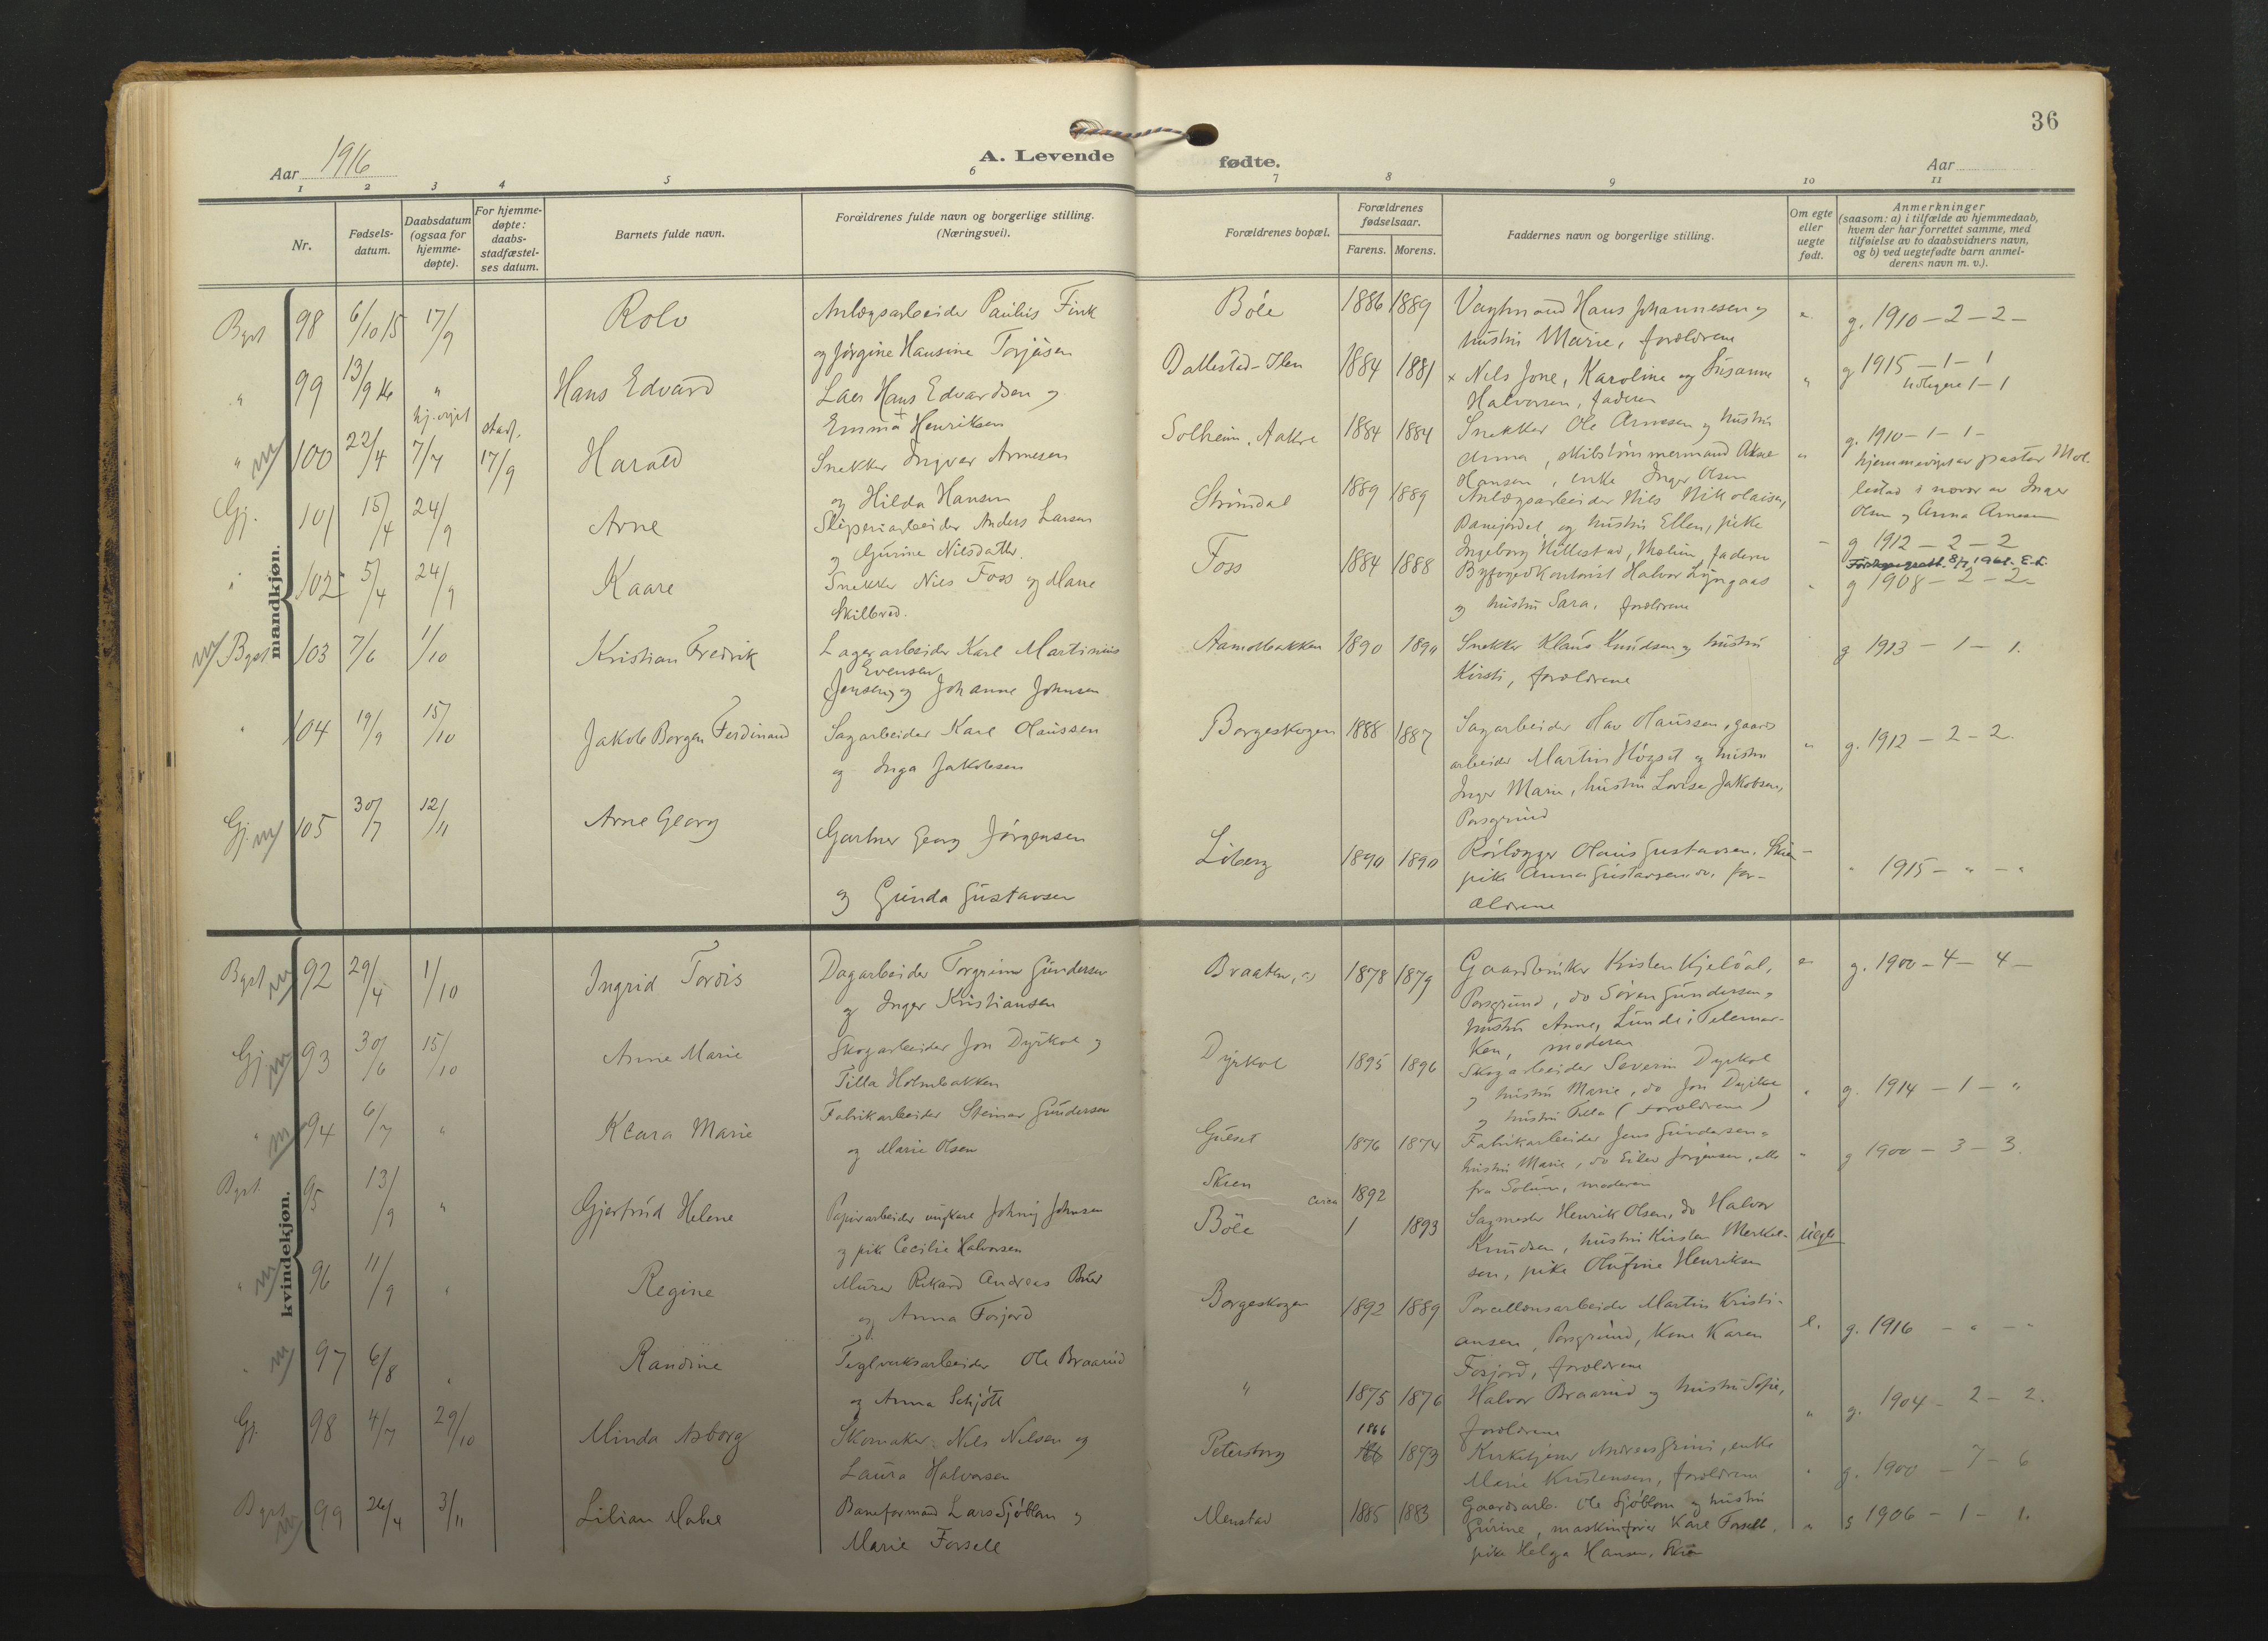 36
Aar 1916
A. Levende fødte.
Aar
1 2 3 4 5 6 7 8 9 10 11
Nr.
Fødsels-
datum.
Daabsdatum
(ogsaa for
hjemme-
døpte).
For hjemme-
døpte:
daabs-
stadfæstel-
ses datum.
Barnets fulde navn.
Forældrenes fulde navn og borgerlige stilling.
(Næringsvei).
Forældrenes bopæl.
Forældrenes
fødselsaar.
Farens. Morens.
Faddernes navn og borgerlige stilling.
Om egte
eller
uegte
født.
Anmerkninger
(saasom: a) i tilfælde av hjemmedaab,
hvem der har forrettet samme, med
tilføielse av to daabsvidners navn,
og b) ved uegtefødte barn anmel-
derens navn m. v.).
mandkjøn.
98 6/10 15 17/9 Rolv
Anlægsarbeider Paulus Fink
og Jørgine Hansine Torjusen
Böle 1886 1889
Hans Johannesen og
hustru Marie, forældrene
g. 1910 – 2 – 2 –
" 99 13/9 16 " Hans Edvard
Hans Edvardsen og
Emma Henriksen
1884 1881
× Nils Jone, Karoline og Susanne
Halvorsen, faderen
" g 1915 – 1 – 1
" 100 22/4 7/7 stadf. 17/9 Harald
Snekker Ingvar Arnesen
og Hilda Hansen
Solheim, Aakre 1884 1884
Snekker Ole Arnesen og hustru
Anna,
Hansen, enke Inger Olsen
" g. 1910 – 1 – 1 –
Olsen og Anna Arnesen
Gj. 101 15/4 24/9 Arne
Sliperiarbeider Anders Larsen
og Gurine Nilsdatter
Strömdal 1889 1889
Anlægsarbeider Nils Nikolaisen,
og hustru Ellen, pike
Ingeborg Hittestad, faderen
g 1912 – 2 – 2
102 5/4 24/9 Kaare
Snekker Nils Foss og Marie
Skilbred.
Foss 1884 1888
Byfogedkontorist Halvor Lyngaas
og hustru Sara, forældrene
g 1908 – 2 – 2 –
Bgst 103 7/6 1/10 Kristian Fredrik
Lagerarbeider Karl Martinius
Evensen
Jensen og Johanne Johnsen
Aamotbakken 1890 1890
Snekker Klaus Knudsen og hustru
Kirsti, forældrene
g 1913 – 1 – 1.
" 104 19/9 15/10 Jakob Borgen Ferdinand
Sagarbeider Karl Olaussen
og Inga Jakobsen
Borgeskogen 1888 1887
Sagarbeider Olav Olaussen, gaards
arbeider Martin Högset og hustru
Inger Marie, hustru Lovise Jakobsen,
Porsgrund
" g. 1912 – 2 – 2.
Gj. 105 30/7 12/11 Arne Georg
Gartner Georg Jörgensen
og Gunda Gustavsen
Liberg 1890 1890
Rörlægger Olaus Gustavsen, Skien
pike Anna Gustavsen do. for-
ældrene
" 1915 – " – "
kvindekjøn.
Bgst 92 29/4 1/10 Ingrid Tordis
Dagarbeider Torgrim Gundersen
og Inger Kristiansen
Braaten, 1878 1879
Gaardbruker Kristen Kjeldal,
Porsgrund, do Sören Gundersen og
hustru Anne, Lunde i Telemar-
ken, moderen
e. g. 1900 – 4 – 4 –
Gj 93 30/6 15/10 Anne Marie
Skogarbeider Jon Dyrkol og
Tilla Holmbakken
Dyrkol 1895 1896
Skogarbeider Severin Dyrkol
og hustru Marie, do Jon Dyrkol
og hustru Tilla (forældrene)
" g. 1914 – 1 – "
" 94 6/7 " Klara Marie
Fabrikarbeider Steinar Gundersen
og Marie Olsen
Gulset 1876 1874
Fabrikarbeider Jens Gundersen og
hustru Marie, do Eilev Jörgensen, alle
fra Solum, moderen
" g 1900 – 3 – 3.
Bgst 95 13/9 " Gjertrud Helene
Papirarbeider ungkarl Johnsen
og pike Cecilie Halvorsen
Skien circa 1892
Böle 1893
Sagmester Henrik Olsen, do Halvor
Knudsen, hustru Kirsten Merkel-
sen, pike Olufine Henriksen
uegte
" 96 11/9 " Regine
Murer Rikard Andreas Buer
og Anna Fosjord
Borgeskogen 1892 1889
Porcellænsarbeider Martin Kristi-
ansen, Porsgrund, kone Karen
Fosjord, forældrene
e. g. 1916 – " – "
" 97 6/8 " Randine
Teglverksarbeider Ole Braarud
og Anna Schjött
" 1875 1876
Halvor Braarud og hustru Sofie,
forældrene
" g. 1904 – 2 – 2.
Gj. 98 4/7 29/10 Minda Asborg
Skomaker Nils Nilsen og
Laura Halvorsen
Petersborg 1866 1873
Kirketjener Andreas Grini, enke
Marie Kristensen, forældrene
" g. 1900 – 7 – 6
Bgst 99 26/4 3/11 Lilian Mabel
Baneformand Lars Sjöblom og
Marie Forsell
Menstad 1885 1883
Gaardsarb. Ole Sjöblom og hustru
Gurine, maskinfører Karl Forsell,
pike Helga Hansen, Skien
" g 1906 – 1 – 1.